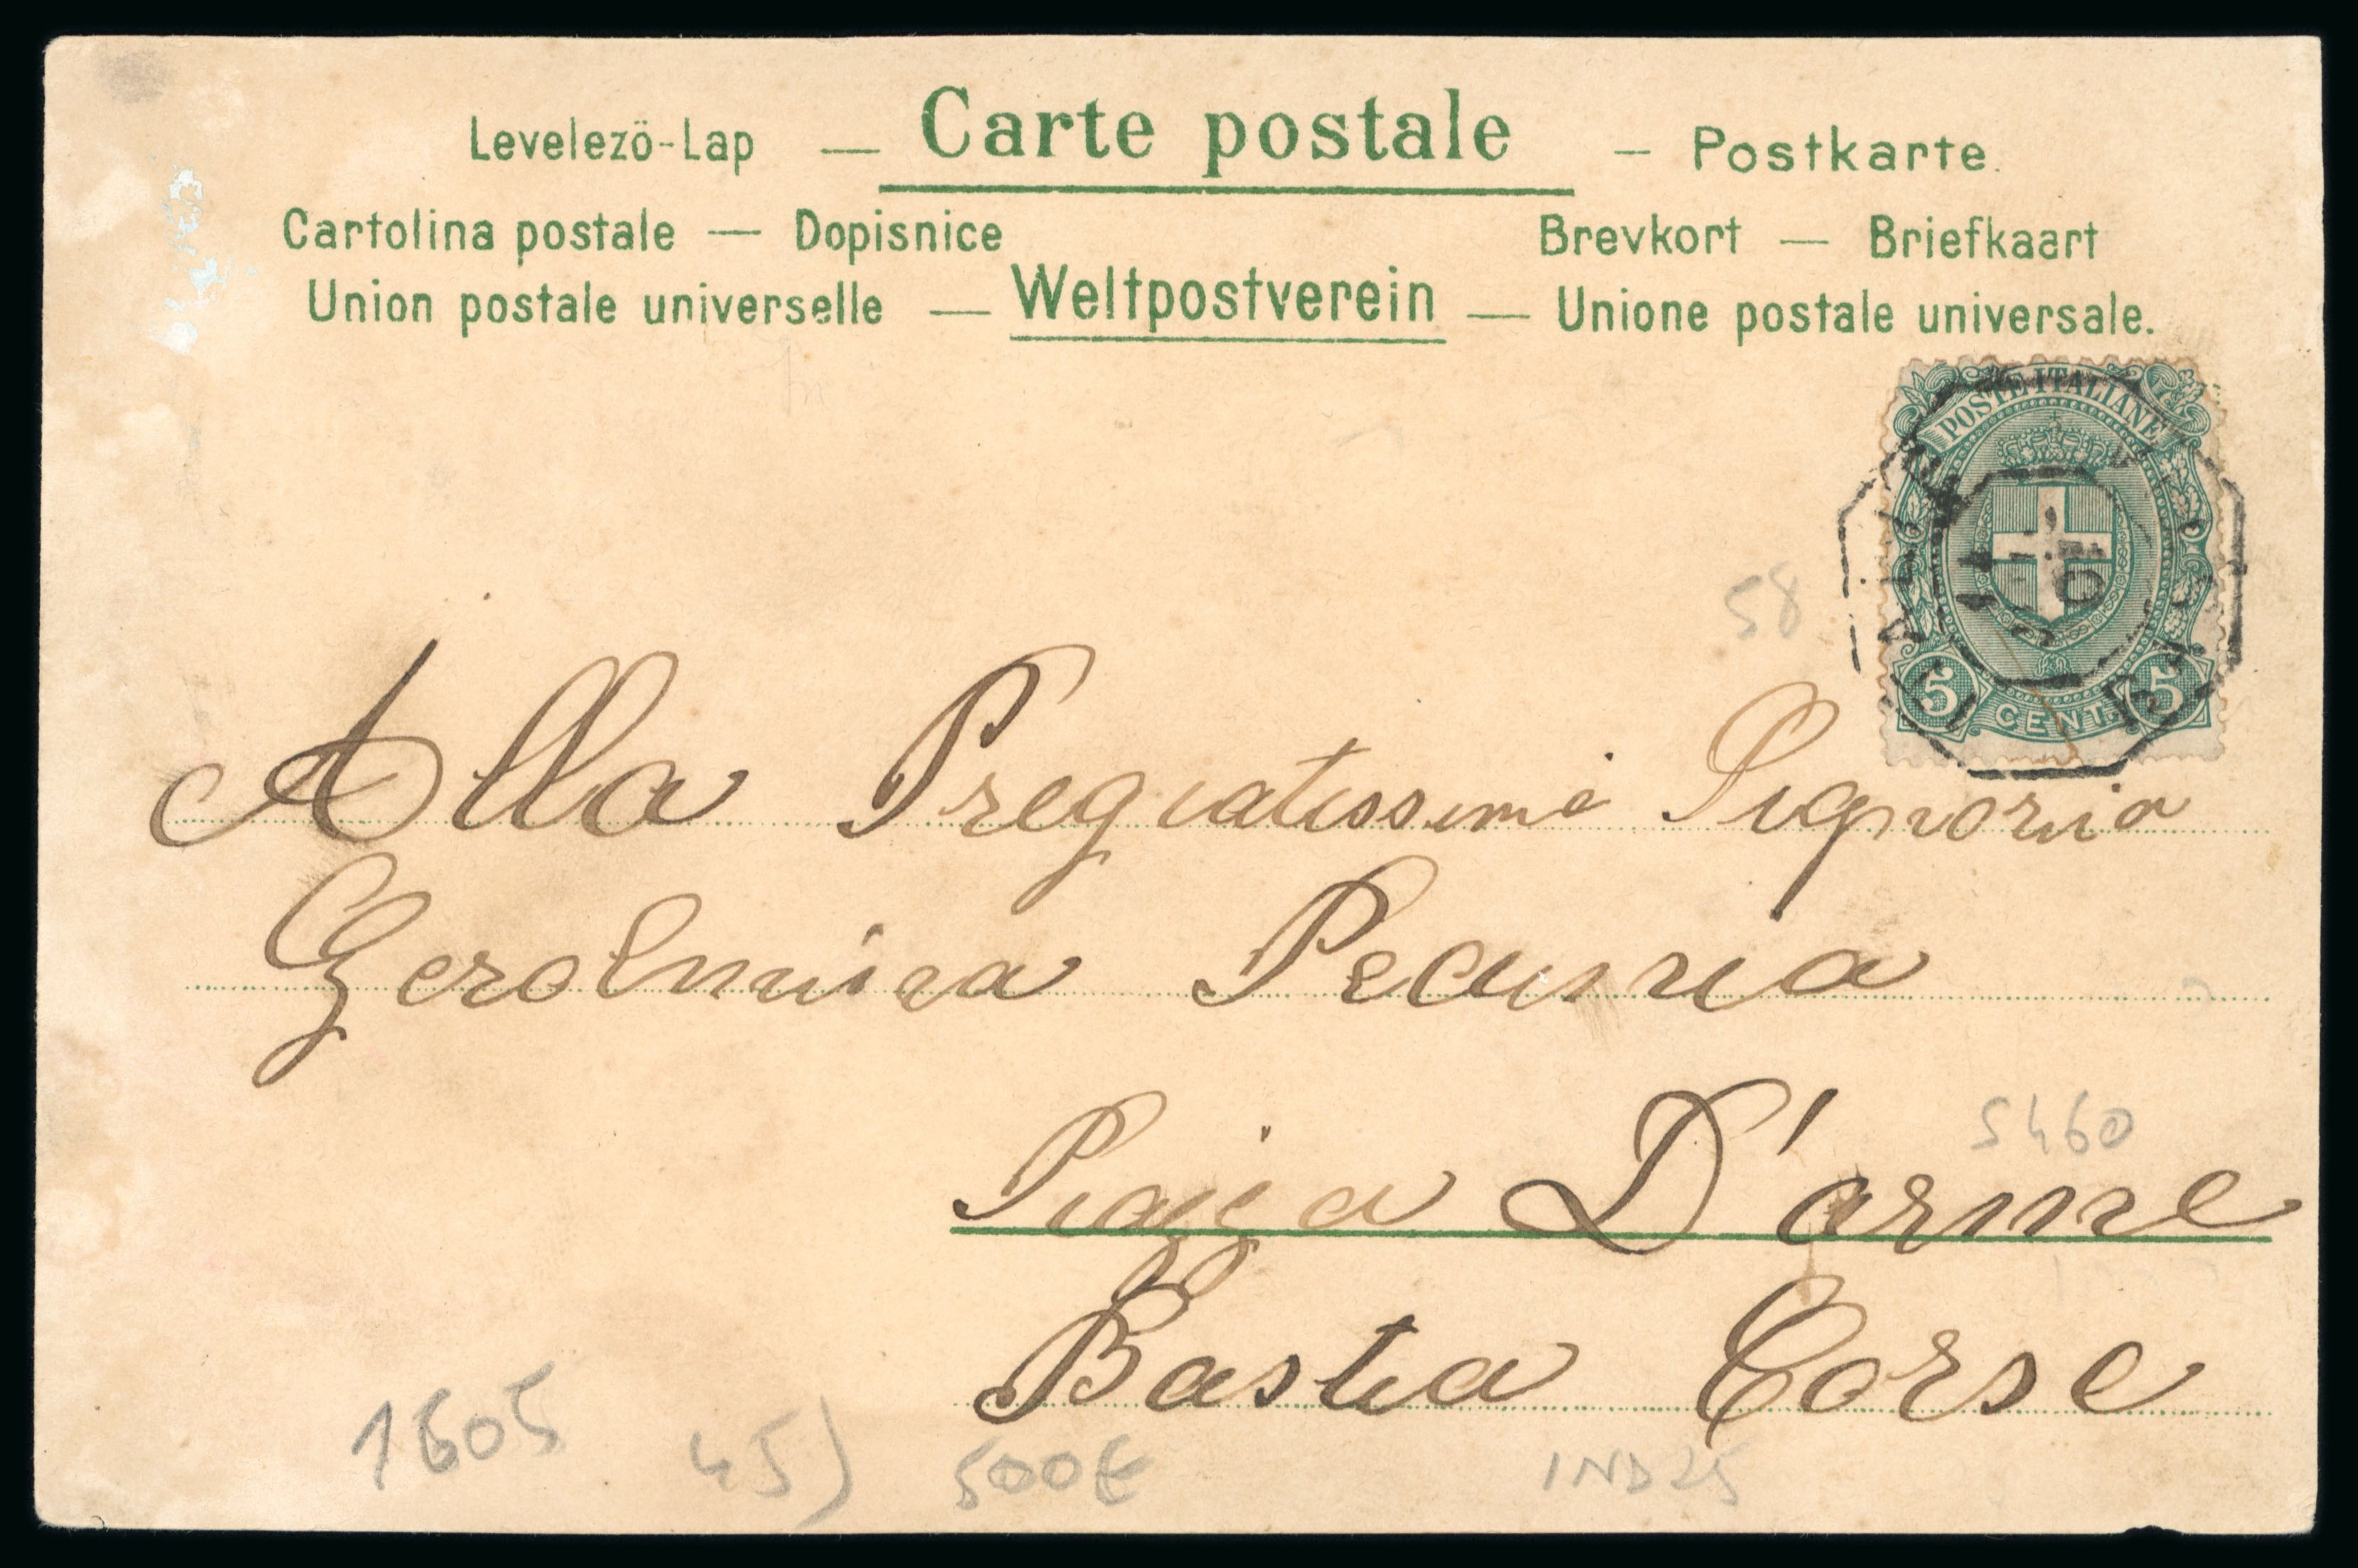 Levelezö-Lap — Carte postale — Postkarte.
Cartolina postale — Dopisnice Brevkort — Briefkaart
Union postale universelle — Weltpostverein — Unione postale universale.
POSTE ITALIANE
5 CENT. 5
58
Alla Pregiatissima Signoria
Gerolmina Pecunia
5460
Piazza D'arme
Bastia Corse
1605 45) 500€ IND25